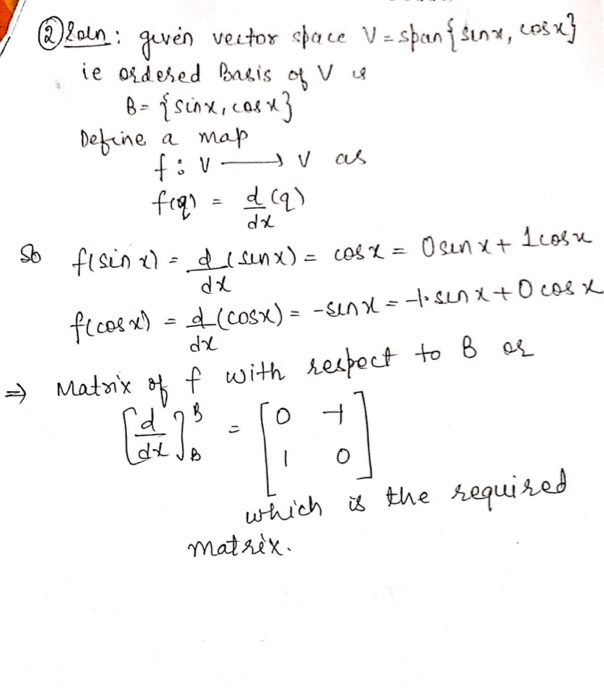 ② Soln: given vector space V = span{sinx, cosx}
ie ordered Basis of V is
B = {sinx, cosx}
Define a map
f: V ⟶ V as
f(q) = d/dx (q)
So f(sin x) = d/dx (sinx) = cosx = 0 sinx + 1 cosx
f(cosx) = d/dx (cosx) = -sinx = -1·sinx + 0 cosx
⇒ Matrix of f with respect to B or
[d/dx]_B^B = [0 -1
1 0]
which is the required
matrix.